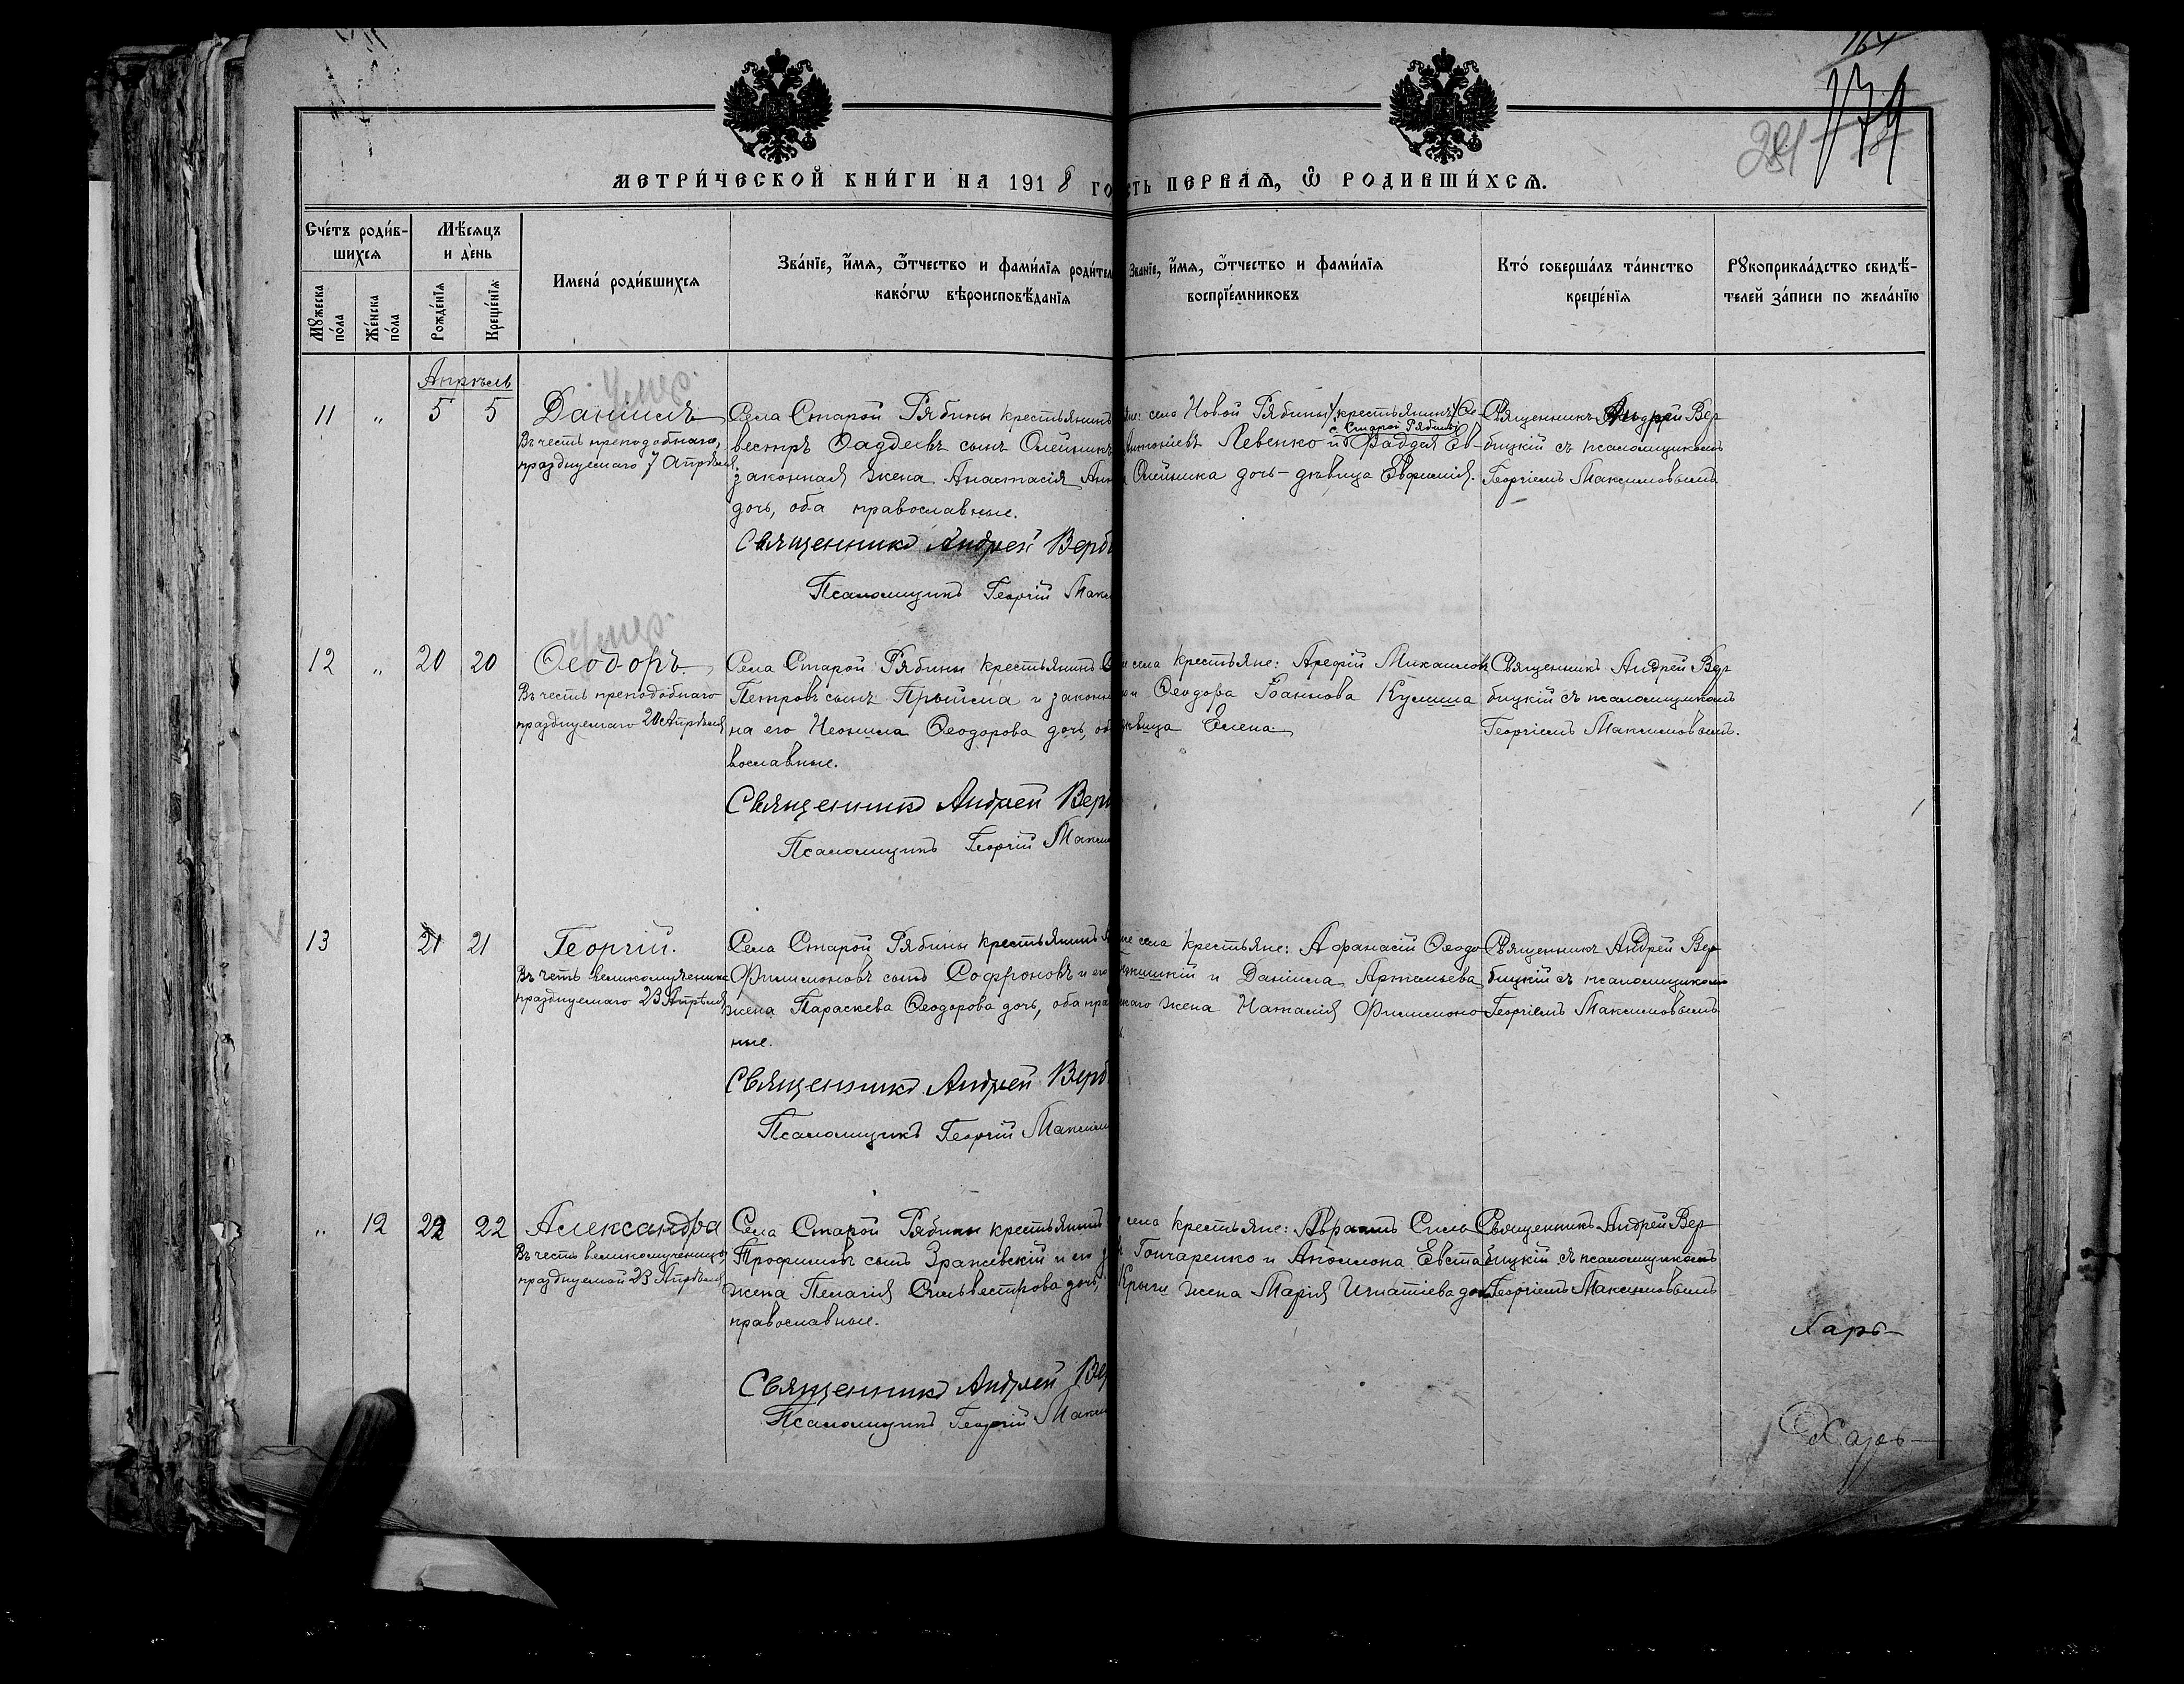 164
174
281
МЕТРИ́ЧЕСКОЙ КНИ́ГИ НА 1918 ГО
СТЬ ПЕРВАѦ, Ѡ҃ РОДИВШИ́ХСѦ.
Сче́тъ роди́в-
шихсѧ
Мѣ́сѧцъ
и де́нь
Мꙋ́жеска
по́ла
Же́нска
по́ла
Рожде́нїѧ
Креще́нїѧ
Имена́ роди́вшихсѧ
Зва́нїе, и́мѧ, ѿ́тчество и фами́лїѧ роди́тел
како́гѡ вѣроисповѣ́данїѧ
Зва́нїе, и́мѧ, ѿ́тчество и фами́лїѧ
воспрїе́мниковъ
Кто́ соверша́лъ та́инство
креще́нїѧ
Рꙋкоприкла́дство свидѣ́-
телей за́писи по жела́нїю
Апрѣль
умер.
11 " 5 5 Даніилъ
Въ честь преподобнаго,
празднуемаго 7 Апрѣля
Села Старой Рябины крестьянинъ
вестръ Ѳаддеевъ сынъ Олейникъ
законная жена Анастасія Ан
дочь, оба православные.
Священникъ Андрей Верб
Псаломщикъ Георгій Макс
не: села Новой Рябины крестьянинъ
с. Старой Рябины
Антоніевъ Левенко и Фаддея Ев-
Олейника дочь-дѣвица Евфимія.
Священникъ Андрей Вер-
бицкій съ псаломщикомъ
Георгіемъ Максимовымъ
умер.
12 " 20 20 Ѳеодоръ
Въ честь преподобнаго
празднуемаго 20 Апрѣля
Села Старой Рябины крестьянинъ
Петровъ сынъ Прыйма и законн
на его Неонила Ѳеодорова дочь, об
вославные.
Священникъ Андрей Верб
Псаломщикъ Георгій Макси
села крестьяне: Арефій Михаилов
и Ѳеодора Іоаннова Кулиша
дѣвица Елена
Священникъ Андрей Вер-
бицкій съ псаломщикомъ
Георгіемъ Максимовымъ.
13 21 21 Георгій.
Въ честь великомученика
празднуемаго 23 Апрѣля
Села Старой Рябины крестьянинъ
Филимоновъ сынъ Софроновъ и его
жена Параскева Ѳеодорова дочь, оба пра
ные.
Священникъ Андрей Верб
Псаломщикъ Георгій Максим
села крестьяне: Афанасій Ѳеодо
и Даніила Артемьева
жена Наталія Филимоно
Священникъ Андрей Вер-
бицкій съ псаломщикомъ
Георгіемъ Максимовымъ
" 12 22 22 Александра
Въ честь великомученицы,
празднуемой 23 Апрѣля
Села Старой Рябины крестьянинъ
Трофимовъ сынъ Зражевскій и его з
жена Пелагія Сильвестрова дочь,
православные.
Священникъ Андрей Вер
Псаломщикъ Георгій Макси
села крестьяне: Авраамъ Силь
Гончаренко и Аполлона Евста
жена Марія Игнатіева дочь
Священникъ Андрей Вер-
бицкій съ псаломщикомъ
Георгіемъ Максимовымъ
Харь-